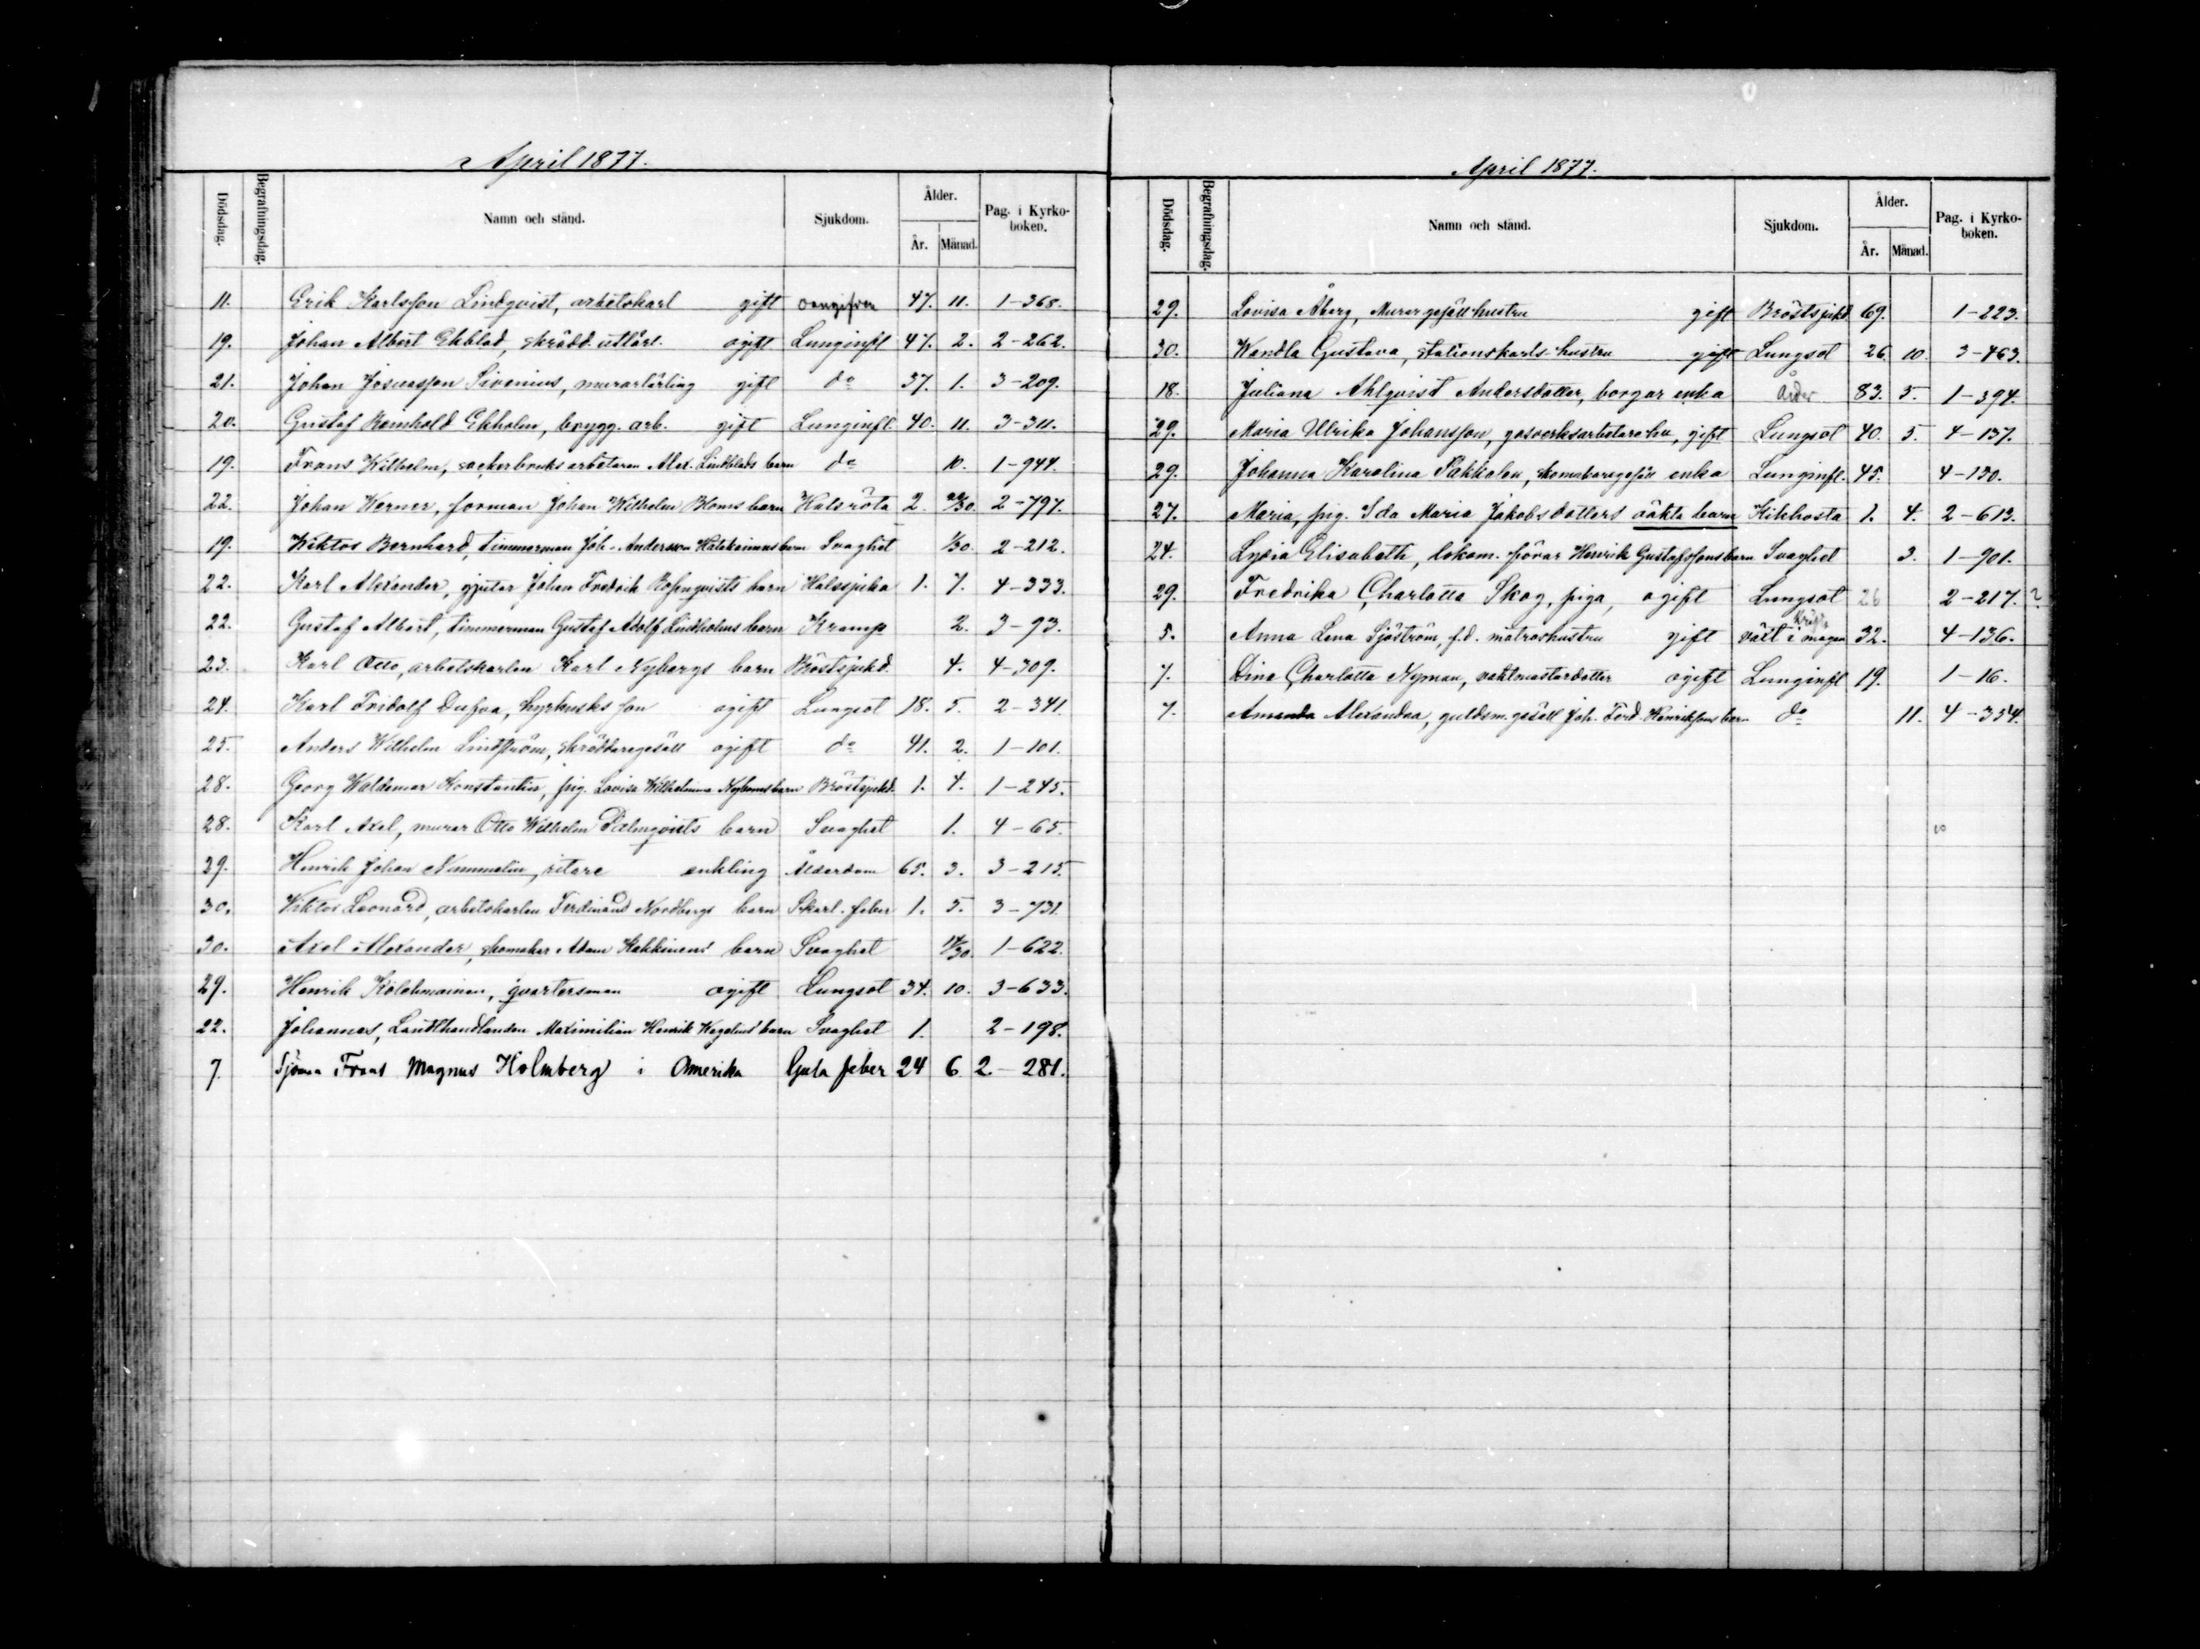 April 1877.
Dödsdag. Begrafningsdag. Namn och stånd. Sjukdom. Ålder. År. Månad. Pag. i Kyrko-boken.
11. Erik Karlsson Lindqvist, arbetskarl gift oangifven 47. 11. 1-368.
19. Johan Albert Ekblad, skrädd. utlärl. ogift Lunginfl 47. 2. 2-262.
21. Johan Josuasson Sirenius, murarlärling gift do 37. 1. 3-209.
20. Gustaf Reinhold Ekholm, brygg. arb. gift Lunginfl. 40. 11. 3-311.
19. Frans Wilhelm, sockerbruks arbetaren Alex. Lindblads barn do 10. 1-944.
22. Johan Werner, forman Johan Wilhelm Bloms barn Halsröta 2. 29/30. 2-797.
19. Wiktor Bernhard, timmerman Joh. Andersson barn Svaghet 1/30. 2-212.
22. Karl Alexander, gjutar Johan Fredrik barn Halssjuka 1. 7. 4-333.
22. Gustaf Albert, timmerman Gustaf Adolf Lindholms barn Kramp 2. 3-93.
23. Karl Otto, arbetskarlen Karl Nybergs barn Bröstsjukd. 4. 4-309.
24. Karl Fridolf Dufva, hyrkusks son ogift Lungsot 18. 5. 2-341.
25. Anders Wilhelm Lindström, skräddaregesäll ogift do 41. 2. 1-101.
28. Georg Waldemar Konstantin, pig. Lovisa Wilhelmina Nyholms barn Bröstsjukd. 1. 4. 1-245.
28. Karl Axel, murar Otto Wilhelm Palmqvists barn Svaghet 1. 4-65.
29. Henrik Johan Nummelin, ritare enkling Ålderdom 65. 3. 3-215.
30. Viktor Leonard, arbetskarlen Ferdinand Nordbergs barn Skarl. feber 1. 5. 3-731.
30. Axel Alexander, skomakar Adam Hakkinens barn Svaghet 14/30. 1-622.
29. Henrik Kolehmainen, qvartersman ogift Lungsot 34. 10. 3-633.
22. Johannes, Landthandlanden Maximilian Henrik Wegelius' barn Svaghet 1. 2-198.
7. Sjöman Frans Magnus Holmberg i Amerika Gula feber 24 6 2-281.
April 1877.
Dödsdag. Begrafningsdag. Namn och stånd. Sjukdom. Ålder. År. Månad. Pag. i Kyrko-boken.
29. Lovisa Åberg, Murargesällhustru gift Bröstsjukd 69. 1-223.
30. Wandla Gustava, stationskarls hustru gift Lungsot 26. 10. 3-463.
18. Juliana Ahlqvist Andersdotter, borgar enka Ålder 83. 5. 1-394.
29. Maria Ulrika Johansson, gasverksarbetare hu, gift Lungsot 40. 5. 4-137.
29. Johanna Karolina, skomakaregesäll enka Lunginfl. 45. 4-130.
27. Maria, pig. Ida Maria Jakobsdotters oäkta barn Kikhosta 1. 4. 2-613.
24. Lydia Elisabeth, lokom. förar Henrik Gustafssons barn Svaghet 3. 1-901.
29. Fredrika Charlotta Skog, piga, ogift Lungsot 26 2-217. ?
5. Anna Lena Sjöström, f.d. matroshustru gift Kräft växt i magen 32. 4-136.
7. Dina Charlotta Nyman, vaktmästardotter ogift Lunginfl 19. 1-16.
7. Amanda Alexandra, guldsm. gesäll Joh. Ferd. Henrikssons barn do 11. 4-354.